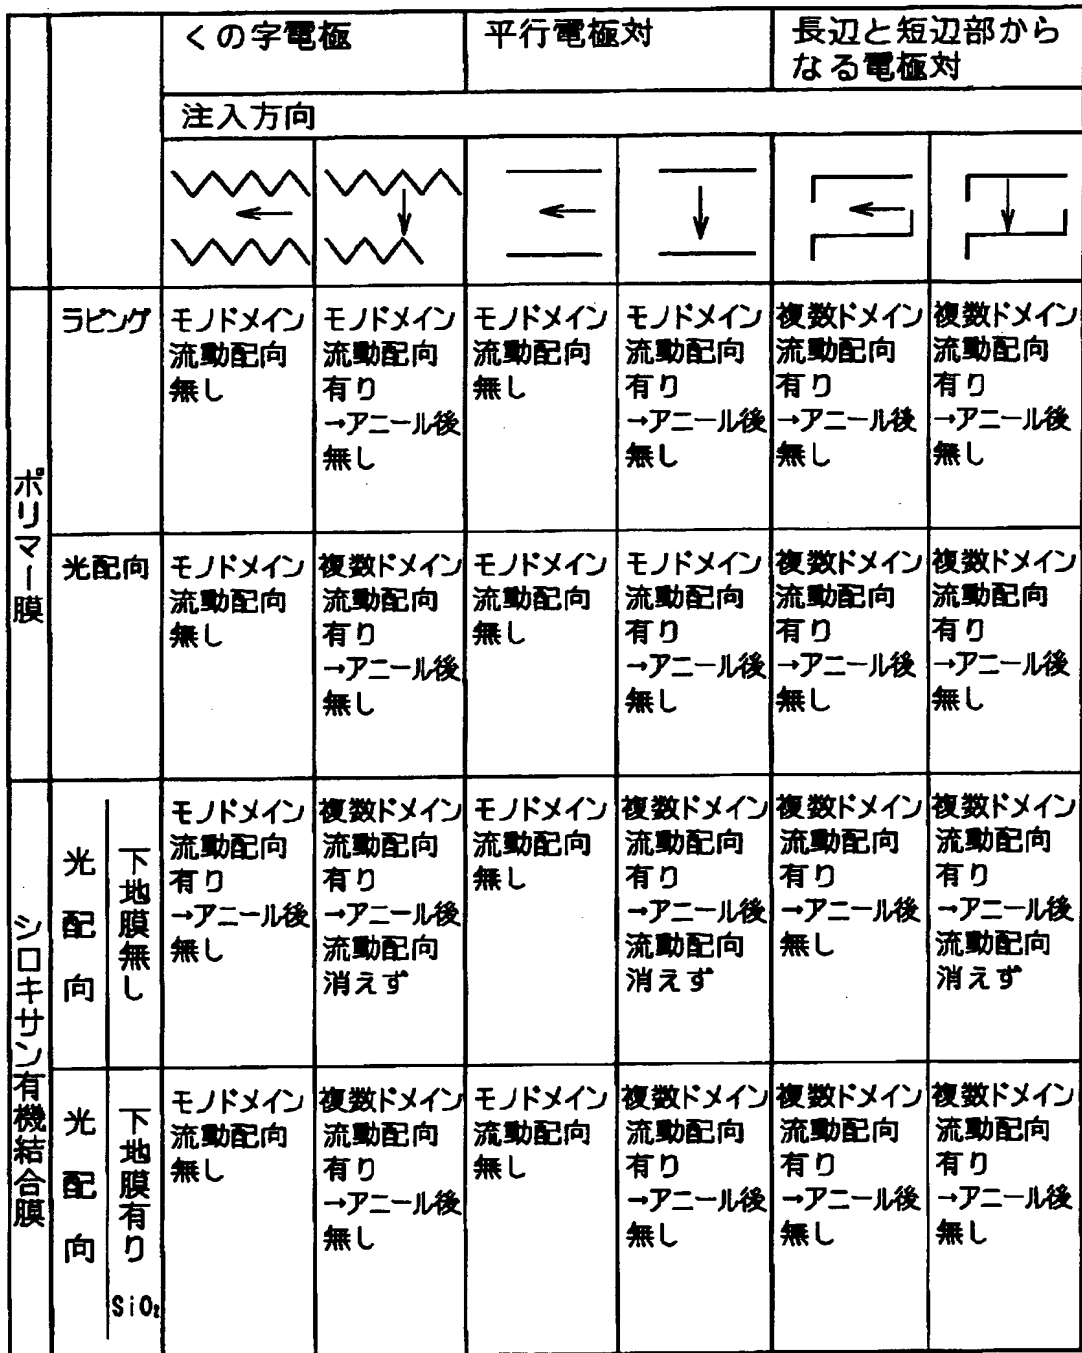 くの字電極
平行電極対
長辺と短辺部から
なる電極対
注入方向
ポリマー膜
ラビング
モノドメイン
流動配向
無し
モノドメイン
流動配向
有り
→アニール後
無し
モノドメイン
流動配向
無し
モノドメイン
流動配向
有り
→アニール後
無し
複数ドメイン
流動配向
有り
→アニール後
無し
複数ドメイン
流動配向
有り
→アニール後
無し
光配向
モノドメイン
流動配向
無し
複数ドメイン
流動配向
有り
→アニール後
無し
モノドメイン
流動配向
無し
モノドメイン
流動配向
有り
→アニール後
無し
複数ドメイン
流動配向
有り
→アニール後
無し
複数ドメイン
流動配向
有り
→アニール後
無し
シロキサン有機結合膜
光配向
下地膜無し
モノドメイン
流動配向
有り
→アニール後
無し
複数ドメイン
流動配向
有り
→アニール後
流動配向
消えず
モノドメイン
流動配向
無し
複数ドメイン
流動配向
有り
→アニール後
流動配向
消えず
複数ドメイン
流動配向
有り
→アニール後
無し
複数ドメイン
流動配向
有り
→アニール後
流動配向
消えず
光配向
下地膜有り
SiO₂
モノドメイン
流動配向
無し
複数ドメイン
流動配向
有り
→アニール後
無し
モノドメイン
流動配向
無し
複数ドメイン
流動配向
有り
→アニール後
無し
複数ドメイン
流動配向
有り
→アニール後
無し
複数ドメイン
流動配向
有り
→アニール後
無し